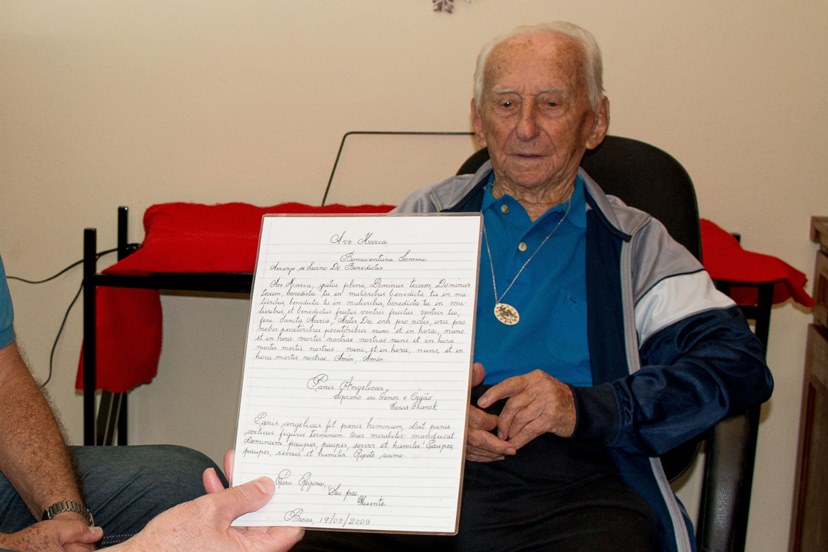 Ave Maria
Bonaventura Somma
Arranjo de Luciano De Benedictis
Ave Maria, gratia plena, Dominus tecum, Dominus
tecum, benedicta tu in mulieribus benedicta tu in mu
lieribus, benedicta tu in mulieribus, benedicta tu in
mulieribus et benedictus fructus ventris fructus ventris tui,
Jesu. Sancta Maria, Mater Dei ora pro nobis, ora pro
nobis pecatoribus pecatoribus nunc et in hora, nunc
et in hora mortis nostrae nunc et in hora
mortis mortis nostrae. nunc, et in hora, nunc et in
hora mortis nostrae. Amén, Amén.
Panis Angelicus,
Soprano ou Tenor e Órgão
César Franck
Panis angelicus fit panis hominum, Dat panis
coelicus figuris terminum. O res mirabilis manducat
dominum pauper, pauper, servus et humilis. Pauper,
pauper, servus et humilis. Repete
Para Regina,
Seu pai
Vicente
19/09/2009